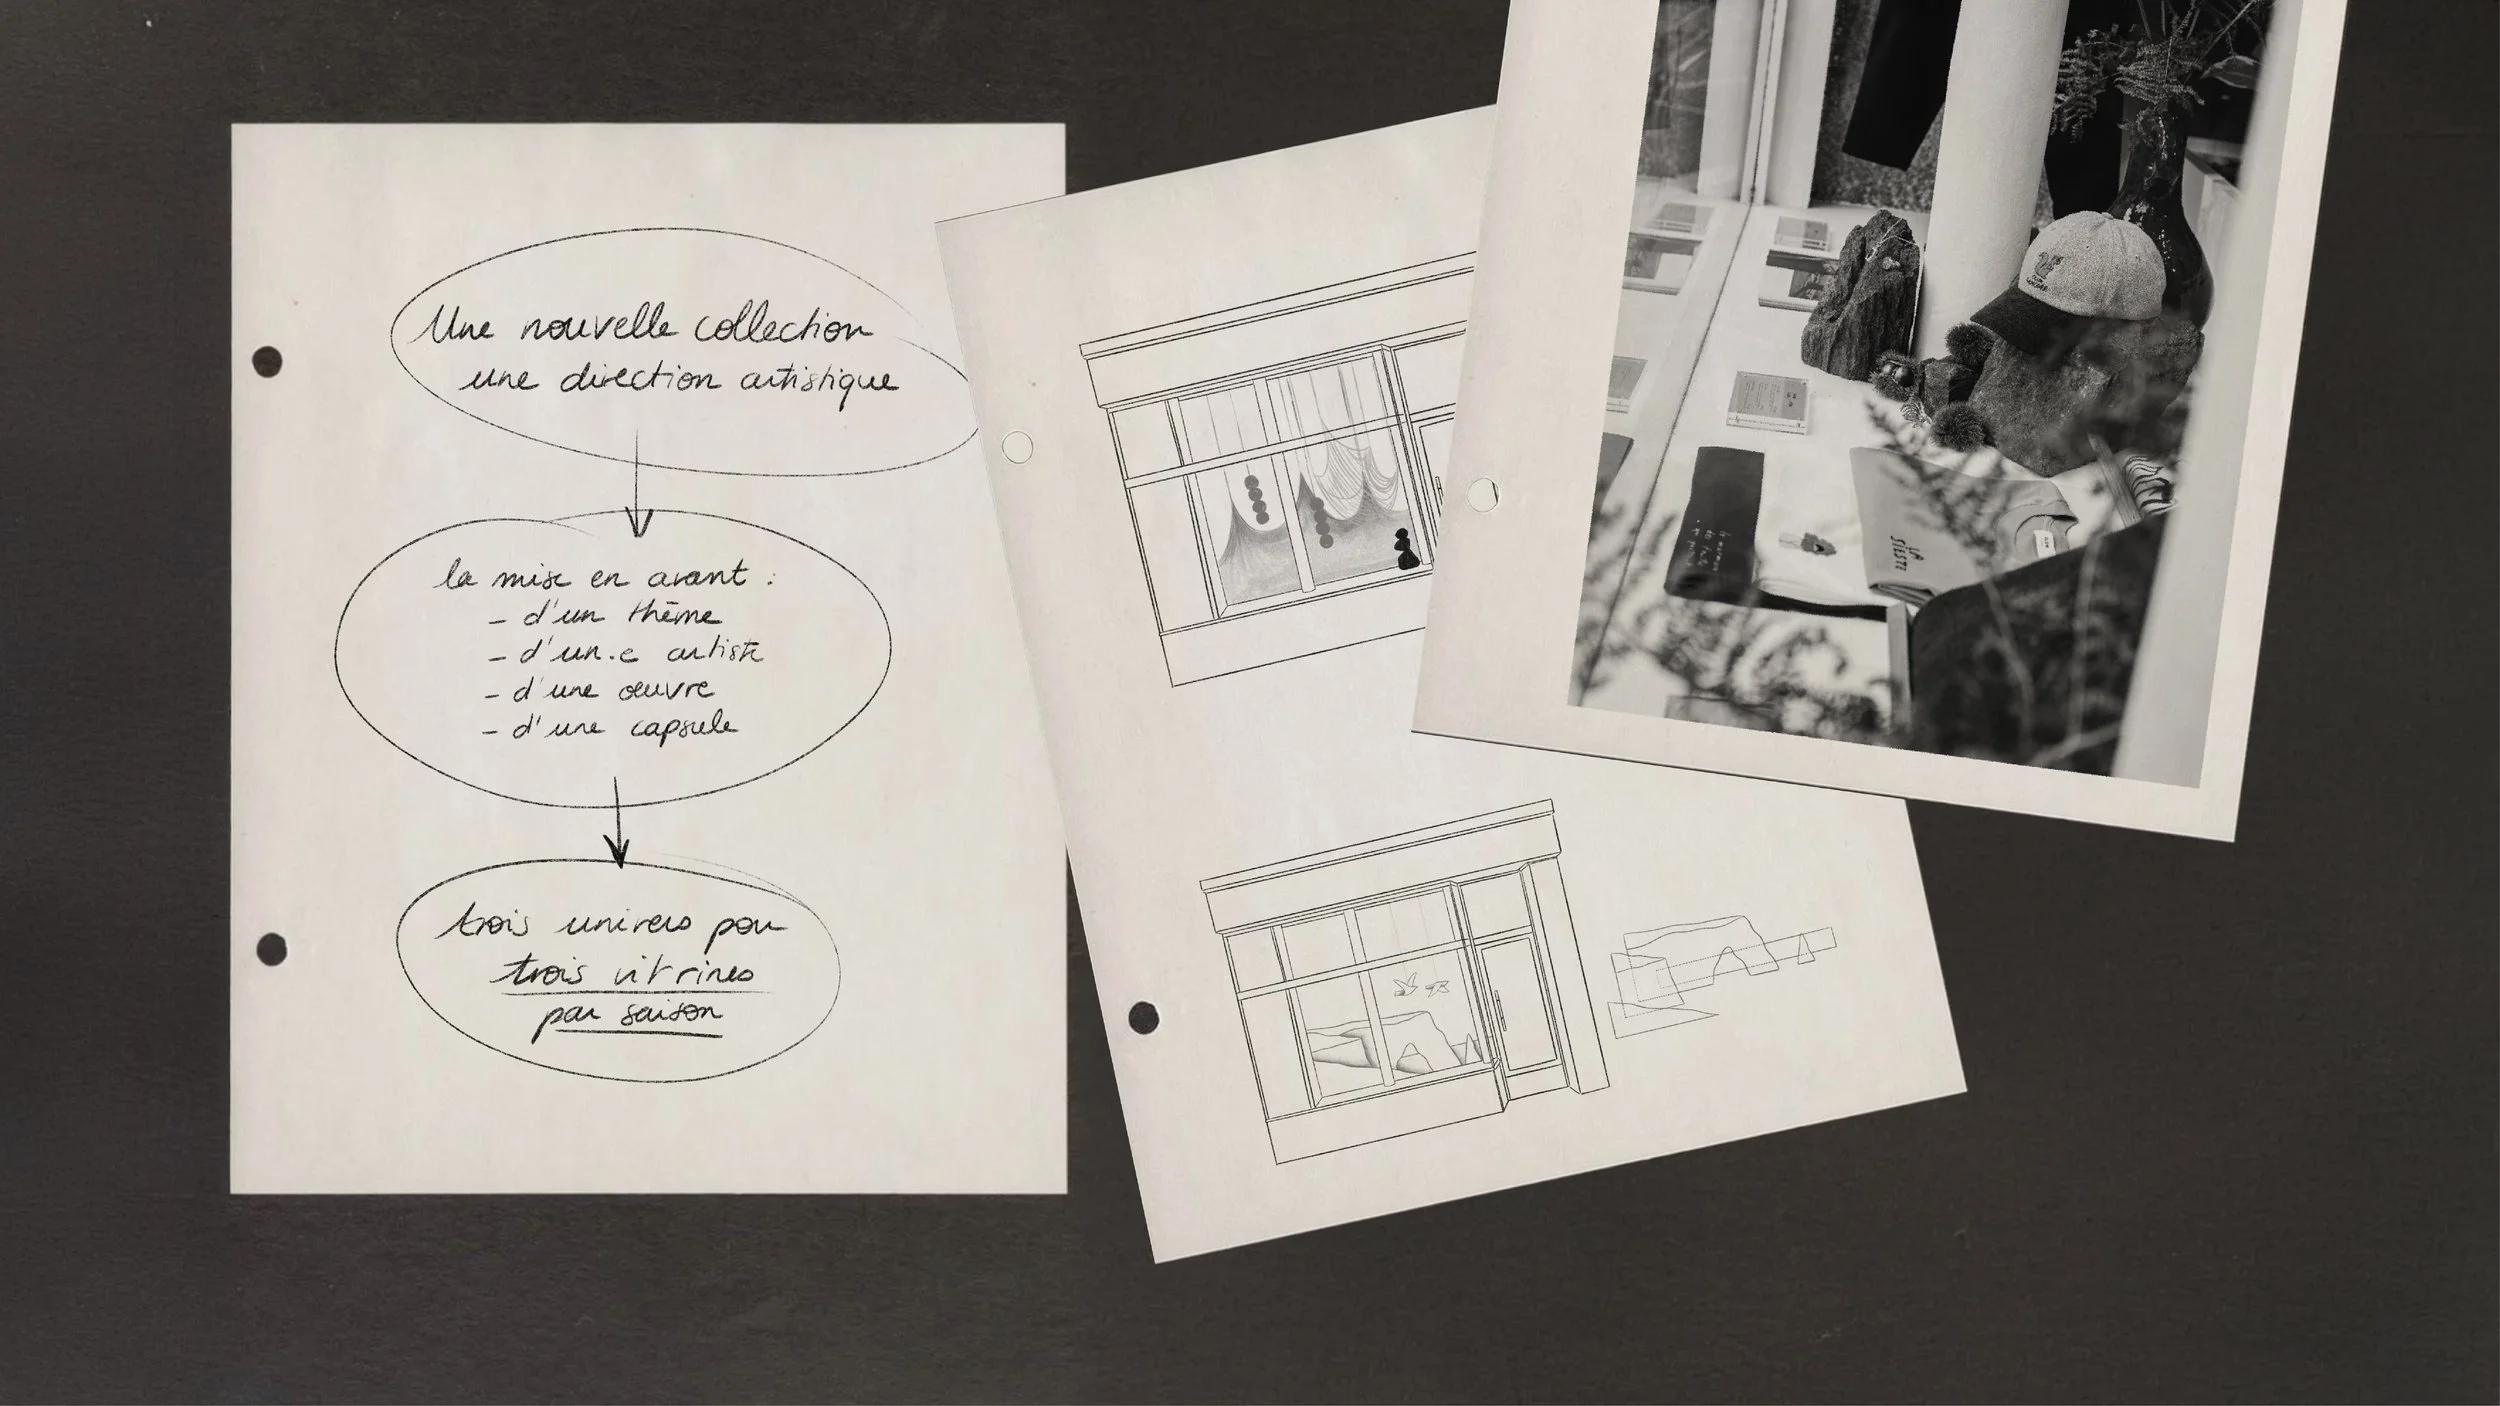 Une nouvelle collection
une direction artistique
la mise en avant :
- d'un thème
- d'un.e artiste
- d'une œuvre
- d'une capsule
trois univers pour
trois vitrines
par saison
LA
SIESTE